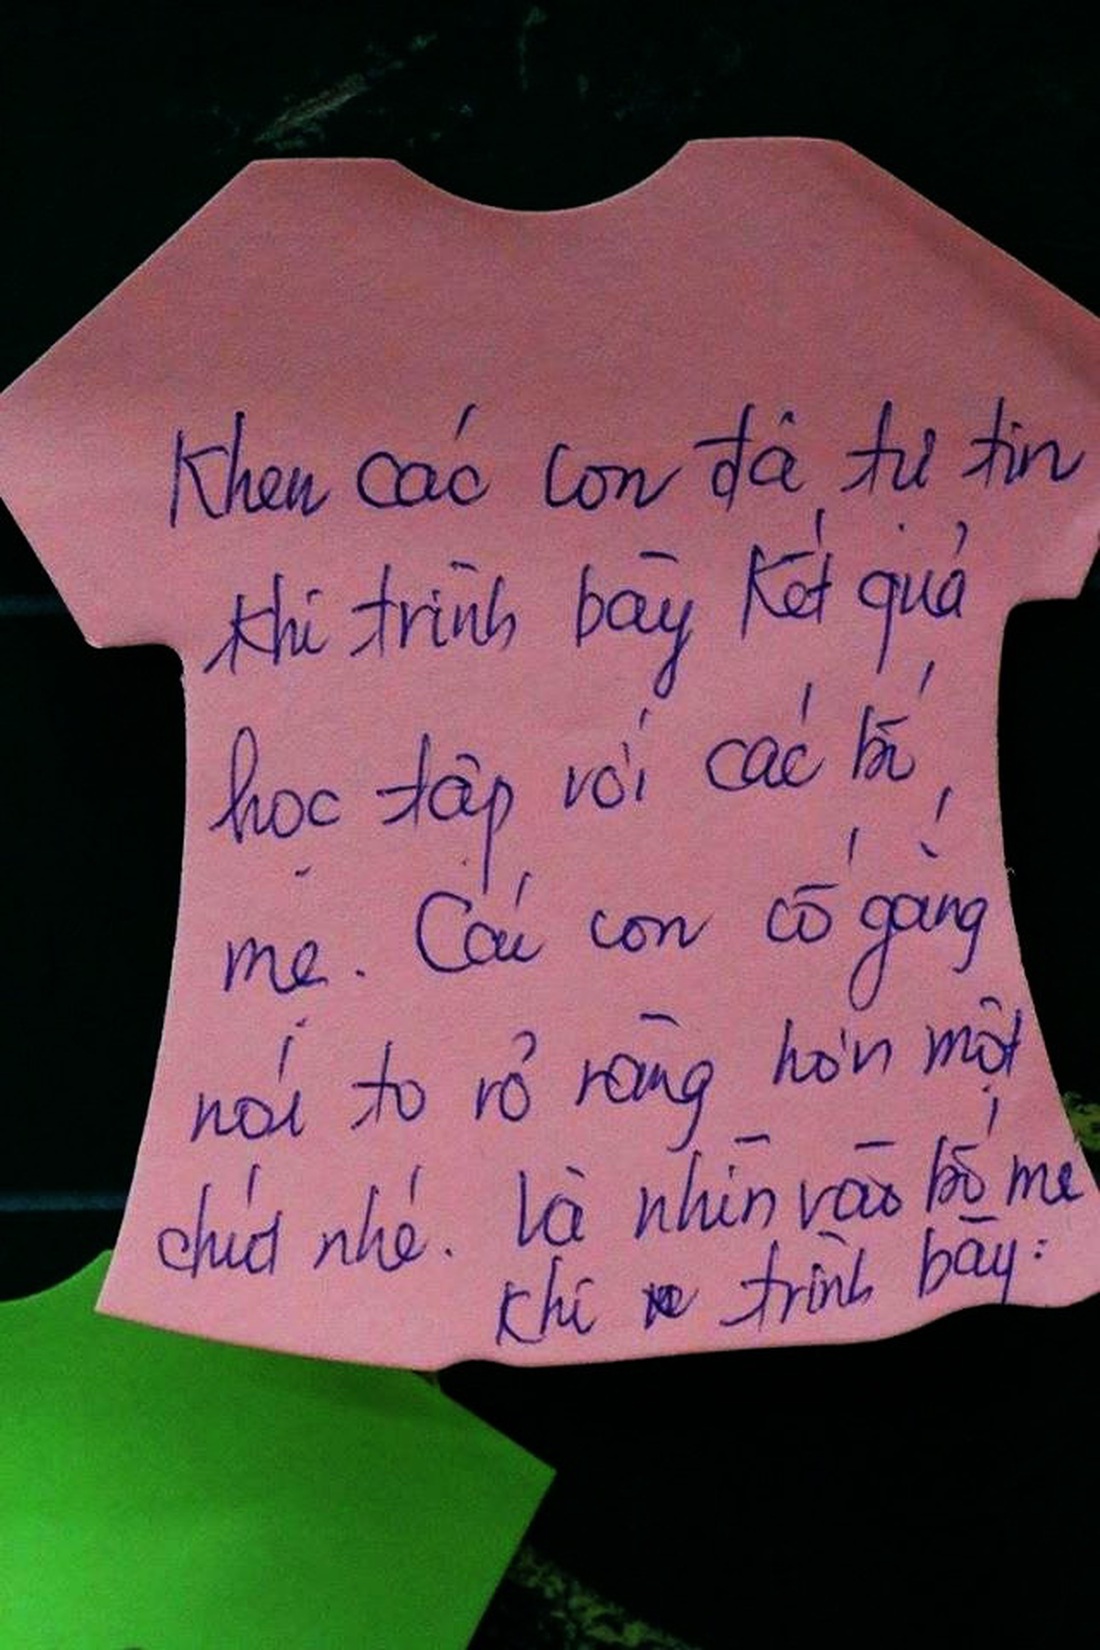 Khen các con đã tự tin
khi trình bày kết quả
học tập với các bố
mẹ. Các con cố gắng
nói to rỏ ràng hơn một
chút nhé. Và nhìn vào bố mẹ
khi trình bày.